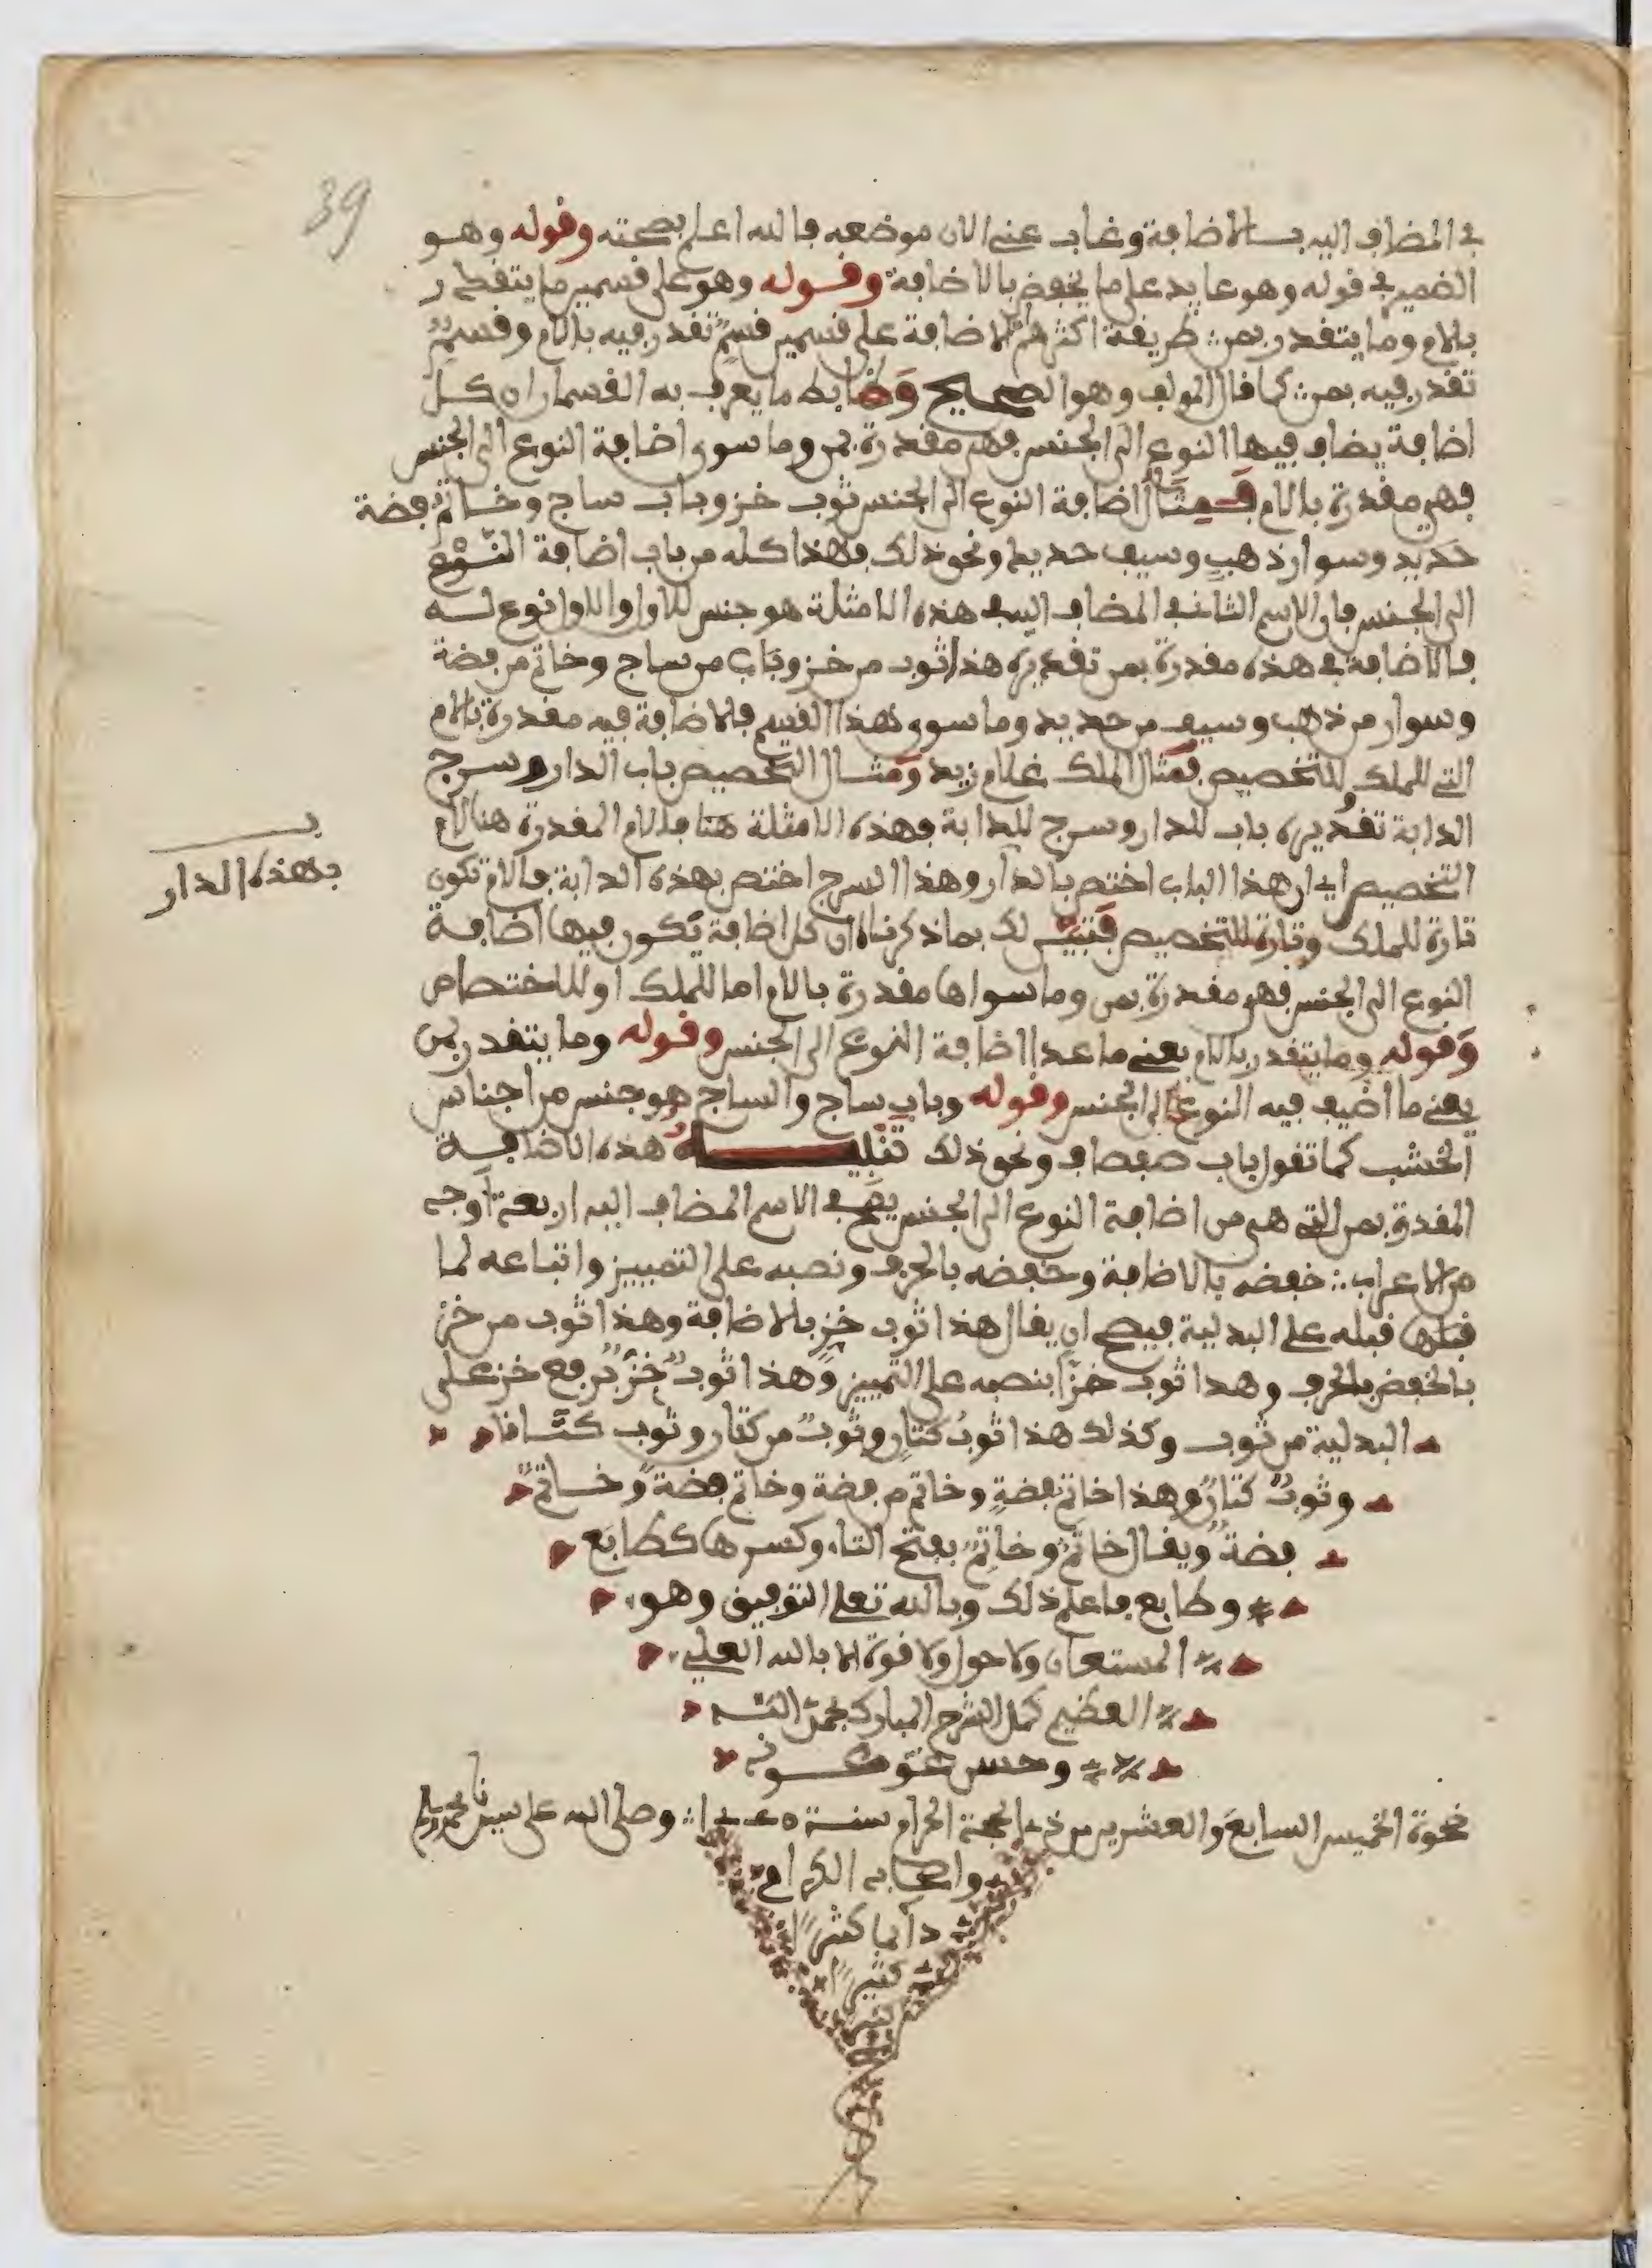 39
في المضاف اليه بالاضافة وغاب عني الان موضعه فالله اعلم بصحته وقوله وهو
الضمير في قوله وهو عايد على ما يخفض بالاضافة وقوله وهو على قسمين ما يتقدر
بالام وما يتقدر بمن طريقة اكثرهم الاضافة على قسمين قسم تقدر فيه بالام وقسم
تقدر فيه بمن كما قال المولف وهو الصحيح وضابط ما يعرف به القسمان ان كل
اضافة يضاف فيها النوع الى الجنس فهي مقدرة بمن وما سوى اضافة النوع الى الجنس
فهي مقدرة بالام فمثال اضافة النوع الى الجنس ثوب خز وباب ساج وخاتم فضة
حديد وسوار ذهب وسيف حديد ونحو ذلك فهذا كله من باب اضافة النوع
الى الجنس فان الاسم الثاني المضاف اليه في هذه الامثلة هو جنس للاول والاول نوع له
فالاضافة في هذه مقدرة بمن تقديره هذا ثوب من خز وباب من ساج وخاتم من فضة
وسوار من ذهب وسيف من حديد وما سوى هذا القسم فالاضافة فيه مقدرة بالام
التي للملك للتخصيص فمثال الملك غلام زيد ومثال التخصيص باب الدار وسرج
الدابة تقديره باب للدار وسرج للدابة فهذه الامثلة هنا فالام المقدرة هنا لام
التخصيص اي ان هذا الباب اختص بالدار وهذا السرج اختص بهذه الدابة فالام تكون
بهذه الدار
تارة للملك وتارة للتخصيص فتبين لك بما ذكرناه ان كل اضافة تكون فيها اضافة
النوع الى الجنس فهي مقدرة بمن وما سواها مقدرة بالام اما للملك او للاختصاص
وقوله وما يتقدر بالام يعني ما عدا اضافة النوع الى الجنس وقوله وما يتقدر بمن
يعني ما اضيف فيه النوع الى الجنس وقوله وباب ساج والساج هو جنس من اجناس
الخشب كما تقول باب صفصاف ونحو ذلك تنبيه هذه الاضافة
المقدرة بمن التي هي من اضافة النوع الى الجنس يصح في الاسم المضاف اليه اربعة اوجه
من الاعراب خفضه بالاضافة وخفضه بالحرف ونصبه على التمييز واتباعه لما
قبله على البدلية فيصح ان يقال هذا ثوب خز بالاضافة وهذا ثوب من خز
بالخفض بالحرف وهذا ثوب خزا بنصبه على التمييز وهذا ثوب خز برفع خز على
البدلية من ثوب وكذلك هذا ثوب كتان وثوب من كتان وثوب كتانا
وثوب كتان وهذا خاتم فضة وخاتم من فضة وخاتم فضة وخاتم
فضة ويقال خاتم وخاتم بفتح التاء وكسرها كطابع
وطابع فاعلم ذلك وبالله تعلى التوفيق وهو
المستعان ولا حول ولا قوة الا بالله العلي
العظيم كمل الشرح المبارك بحمد الله
وحسن عونه
ضحوة الخميس السابع والعشرين من ذي الحجة الحرام سنة وصلى الله على سيدنا محمد
واصحابه الكرام
دائما كثيرا
كثيرا